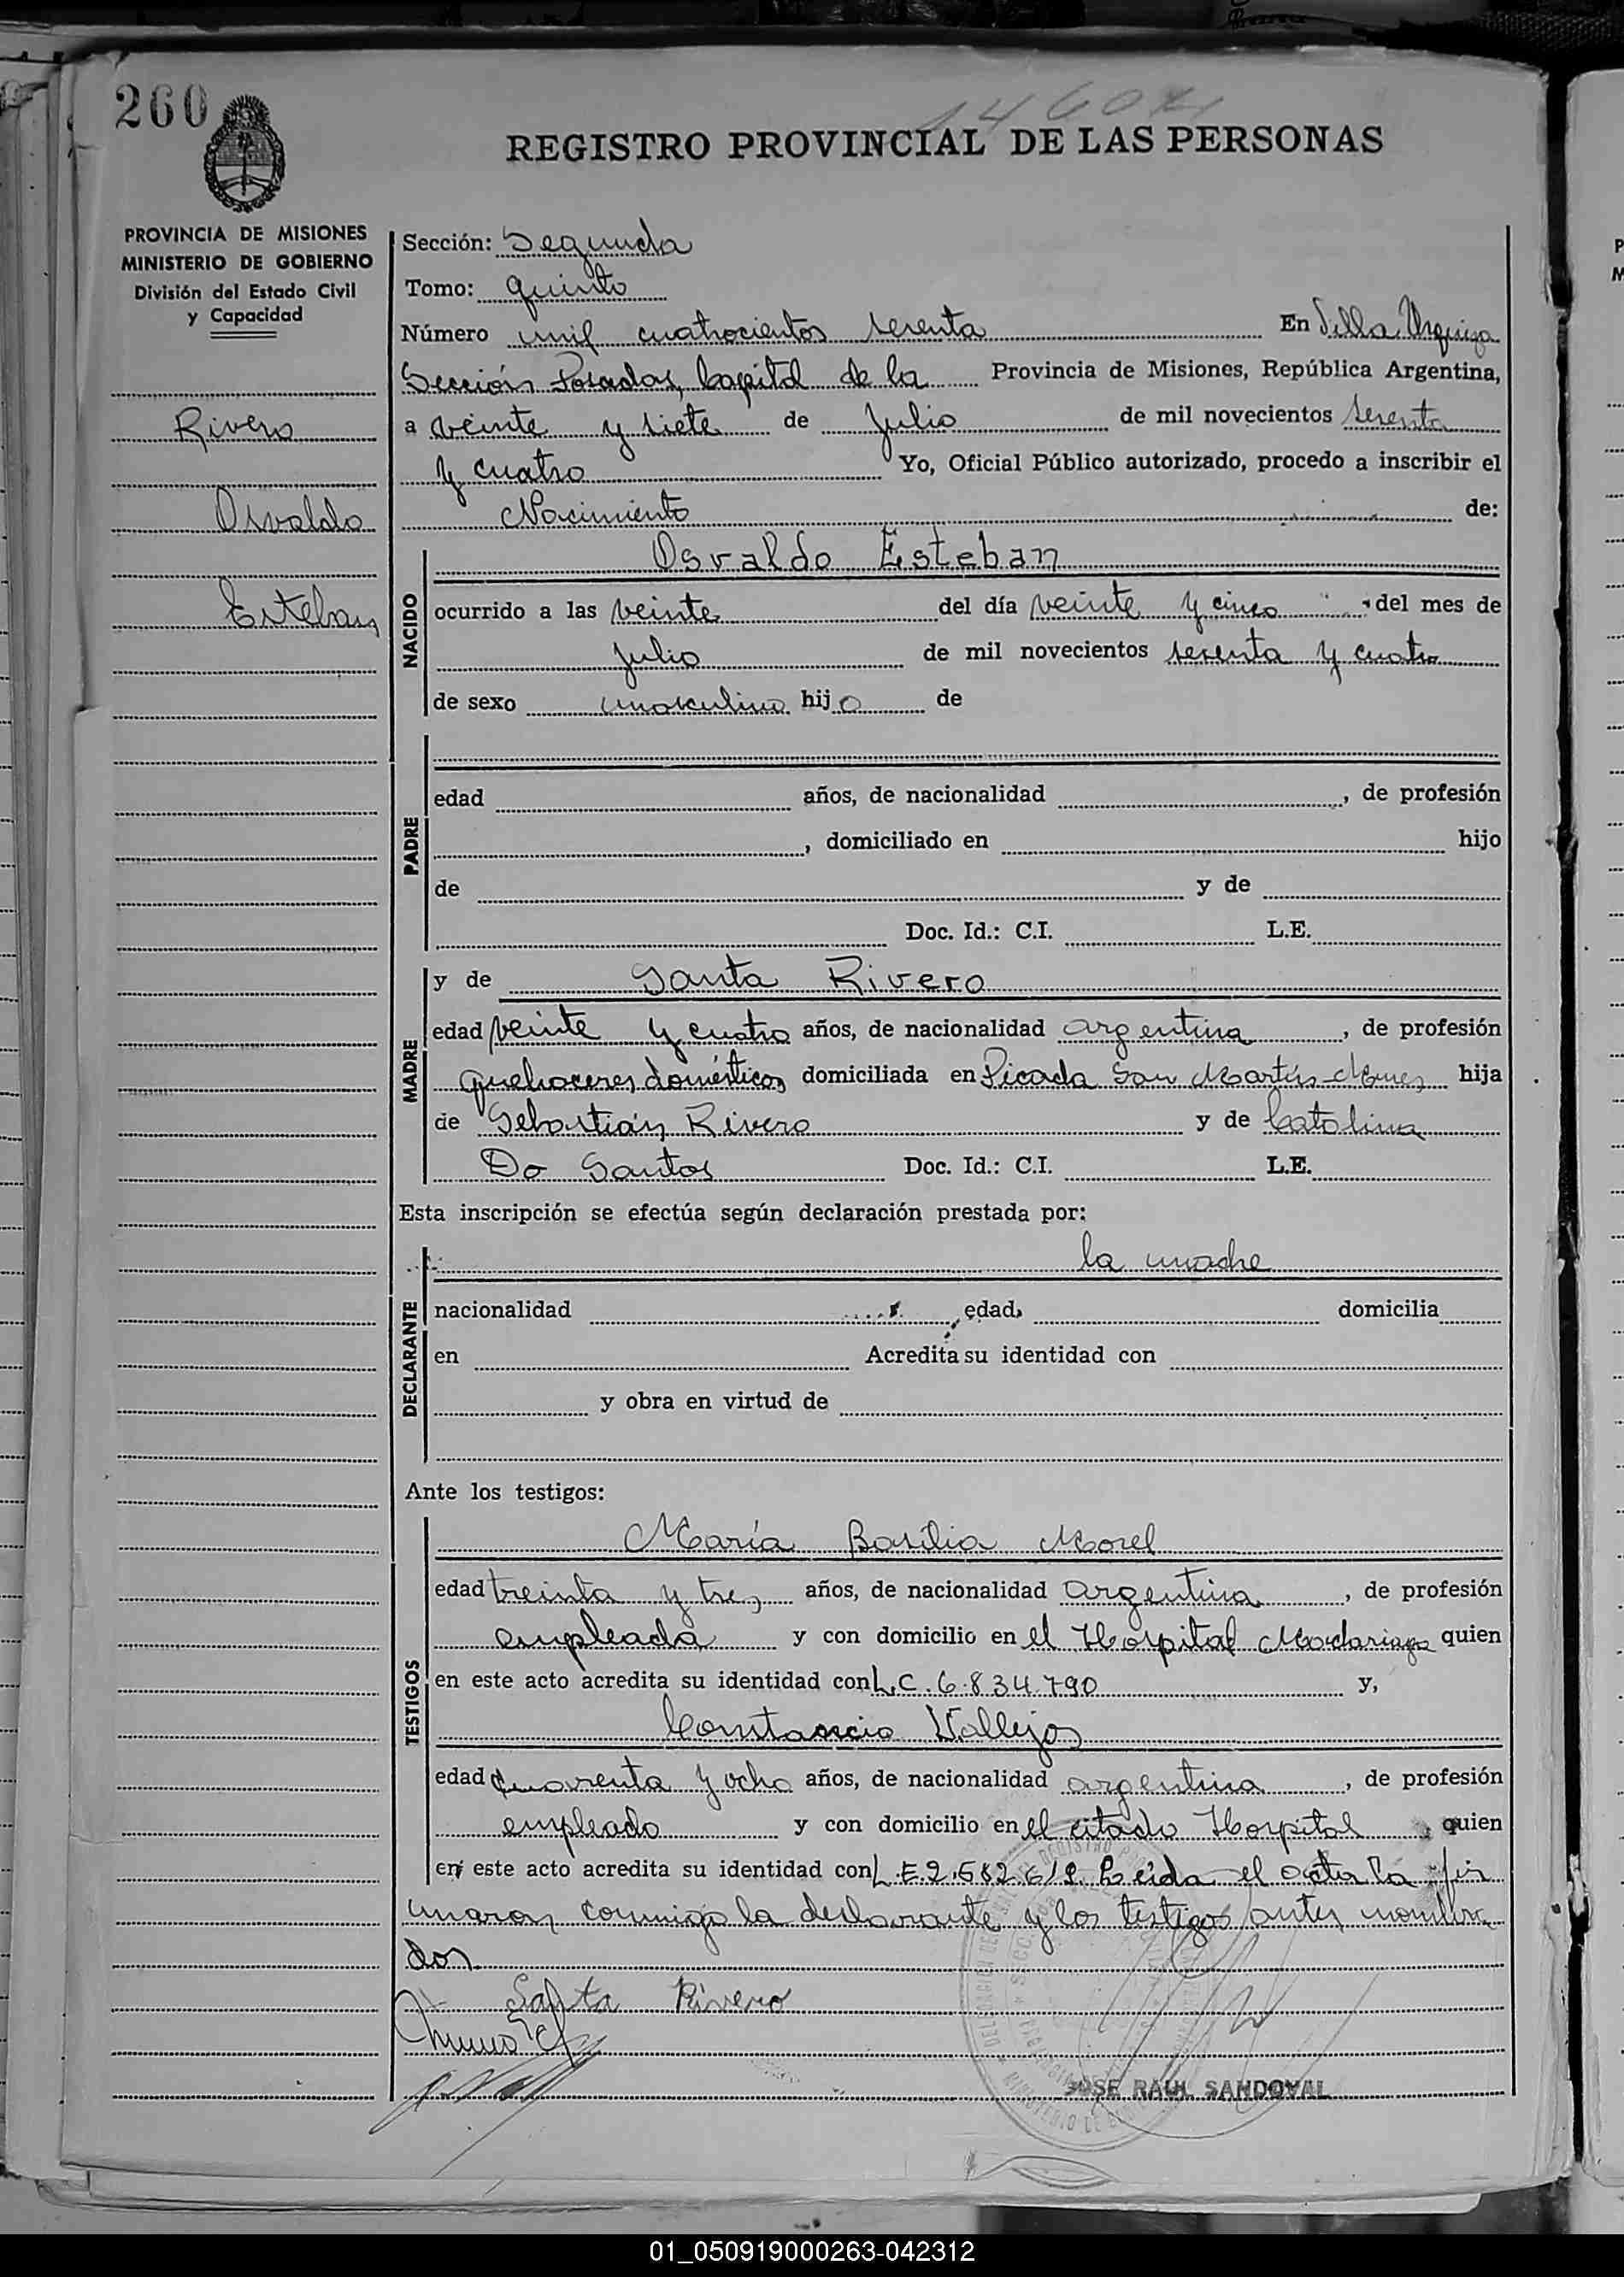 260
REGISTRO PROVINCIAL DE LAS PERSONAS
PROVINCIA DE MISIONES
MINISTERIO DE GOBIERNO
División del Estado Civil
y Capacidad
Rivero
Osvaldo
Esteban
Sección: Segunda
Tomo: quinto
Número mil cuatrocientos sesenta En Villa Urquiza
Sección Posadas, Capital de la Provincia de Misiones, República Argentina,
a veinte y siete de Julio de mil novecientos sesenta
y cuatro Yo, Oficial Público autorizado, procedo a inscribir el
Nacimiento de:
NACIDO
Osvaldo Esteban
ocurrido a las veinte del día veinte y cinco del mes de
Julio de mil novecientos sesenta y cuatro
de sexo masculino hijo de
PADRE
edad años, de nacionalidad , de profesión
, domiciliado en hijo
de y de
Doc. Id.: C.I. L.E.
MADRE
y de Santa Rivero
edad veinte y cuatro años, de nacionalidad argentina , de profesión
quehaceres domésticos domiciliada en Picada San Martín hija
de Sebastián Rivero y de Catalina
Do Santos Doc. Id.: C.I. L.E.
Esta inscripción se efectúa según declaración prestada por:
DECLARANTE
la madre
nacionalidad , edad, domicilia
en Acredita su identidad con
y obra en virtud de
Ante los testigos:
TESTIGOS
María Basilia Morel
edad treinta y tres años, de nacionalidad argentina , de profesión
empleada y con domicilio en el Hospital Madariaga quien
en este acto acredita su identidad con L.C. 6.834.790 y,
Constancio Vallejos
edad cuarenta y ocho años, de nacionalidad argentina , de profesión
empleado y con domicilio en el citado Hospital , quien
en este acto acredita su identidad con L.E. Leida el acta la fir
maron conmigo la declarante y los testigos antes nombra
dos
Santa Rivero
JOSE RAUL SANDOVAL
01_050919000263-042312